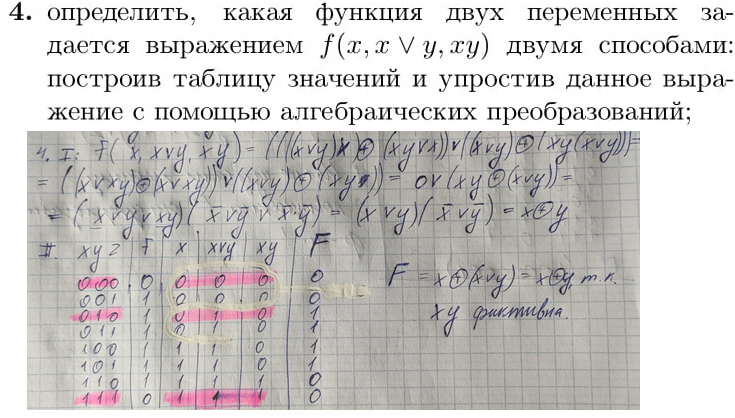 4. определить, какая функция двух переменных за-
дается выражением f(x, x ∨ y, xy) двумя способами:
построив таблицу значений и упростив данное выра-
жение с помощью алгебраических преобразований;
4. I: F(x, x∨y, xy) = (((x∨y)x)⊕(xy∨x))∨((x∨y)⊕(xy(x∨y)))=
= ((x∨xy)⊕(x∨xy))∨((x∨y)⊕(xy)) = 0∨(xy⊕(x∨y)) =
= (x∨y∨xy)(x̄∨ȳ∨x̄·ȳ) = (x∨y)(x̄∨ȳ) = x⊕y
II. xyz F x x∨y xy F
000 0 0 0 0 0
001 1 0 0 0 0
010 1 0 1 0 1
011 1 0 1 0 1
100 1 1 1 0 1
101 1 1 1 0 1
110 1 1 1 1 0
111 0 1 1 1 0
F = x⊕(x∨y) = x⊕y, т.к.
xy фиктивна.